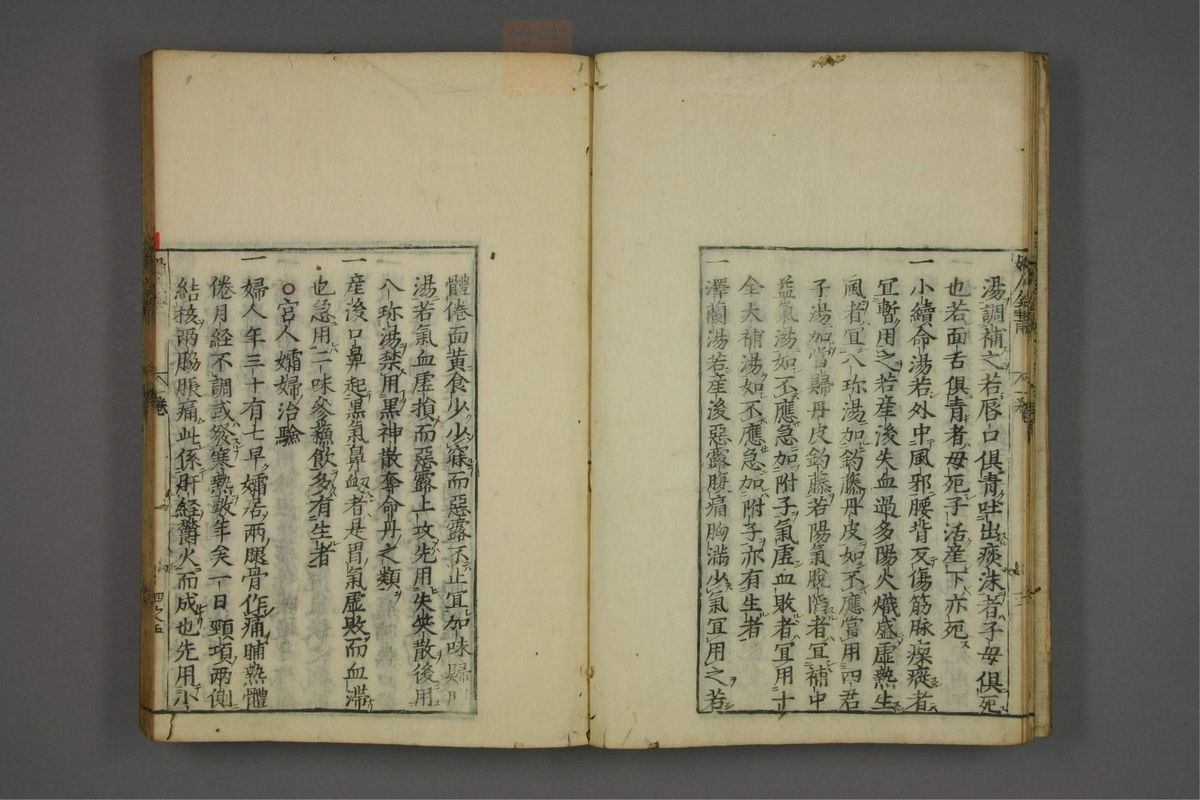 湯調補之若唇口俱青吐出痰沫者子母俱死
也若面舌俱青者母死子活產下亦死
一小續命湯若外中風邪腰背反傷筋脉瘈瘲者
宜暫用之若産後失血過多陽火熾盛虚熱生
風者宜八珎湯加鈎藤丹皮如不應當用四君
子湯加當歸丹皮鈎藤若陽氣脫陷者宜補中
益氣湯如不應急加附子氣虚血敗者宜用十
全大補湯如不應急加附子亦有生者
一澤蘭湯若産後惡露腹痛胸滿少氣宜用之若
體倦面黄食少少寐而惡露不止宜加味歸
湯若氣血虚損而惡露上攻先用失笑散後用
八珎湯禁用黒神散奪命丹之類
一産後口鼻起黒氣鼻衂者是胃氣虚敗而血滯
也急用二味參蘓飲多有生者
○宮人孀婦治驗
一婦人年三十有七早孀居兩腿骨作痛晡熱體
倦月経不調或發寒熱數年矣一日頸項兩側
結核兩脇脹痛此係肝経鬱火而成也先用小
四之五